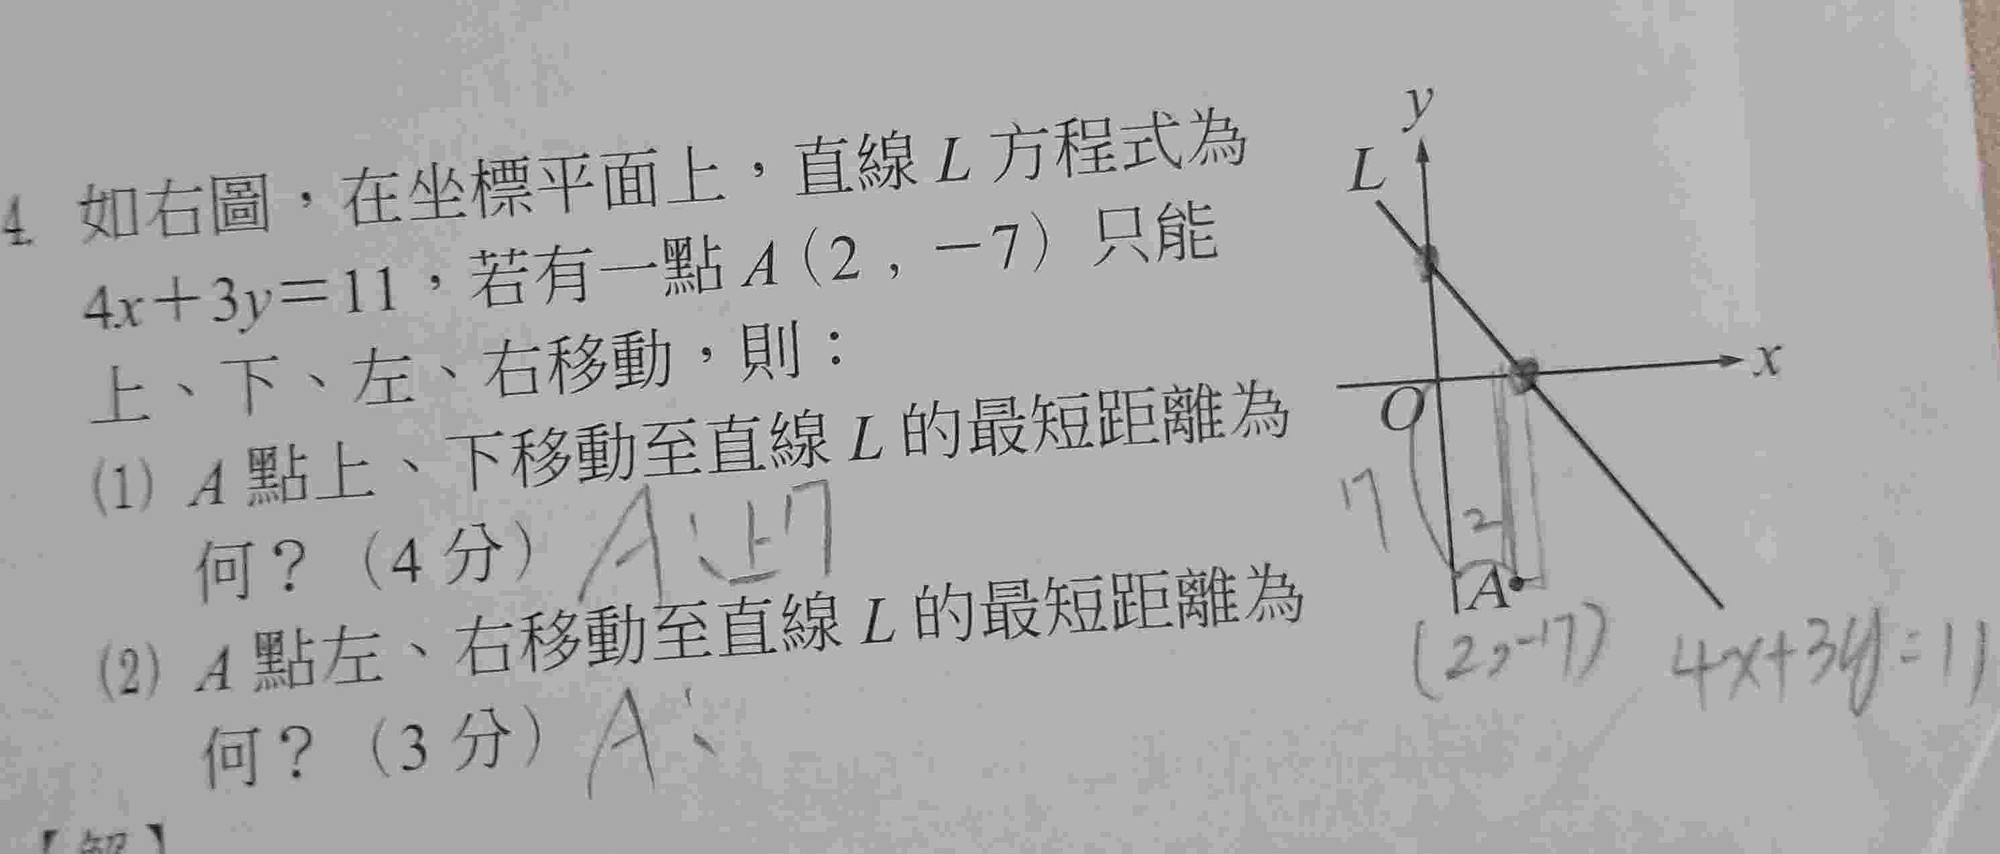 4 如右圖，在坐標平面上，直線 L 方程式為
4x＋3y＝11，若有一點 A（2，－7）只能
上、下、左、右移動，則：
(1) A 點上、下移動至直線 L 的最短距離為
何？（4 分）A：上7
(2) A 點左、右移動至直線 L 的最短距離為
何？（3 分）A：
【解】
y
L
x
O
2
A
4x+3y=11